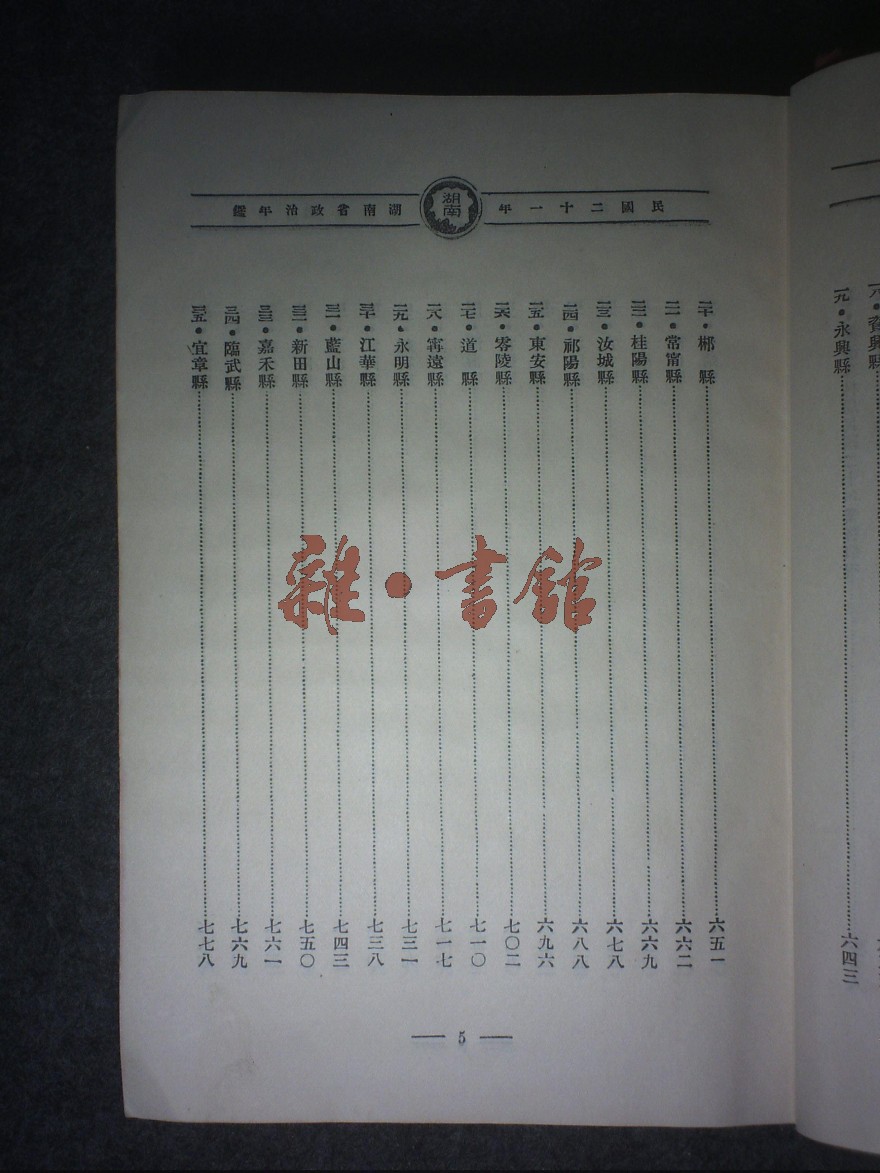 民國二十一年
湖南
湖南省政治年鑑
二十・郴縣……六五一
二一・常甯縣……六六二
二二・桂陽縣……六六九
二三・汝城縣……六七八
二四・祁陽縣……六八八
二五・東安縣……六九六
二六・零陵縣……七〇二
二七・道縣……七一〇
二八・甯遠縣……七一七
二九・永明縣……七三一
三十・江華縣……七三八
三一・藍山縣……七四三
三二・新田縣……七五〇
三三・嘉禾縣……七六一
三四・臨武縣……七六九
三五・宜章縣……七七八
— 5 —
雜・書館
一九・永興縣……六四三